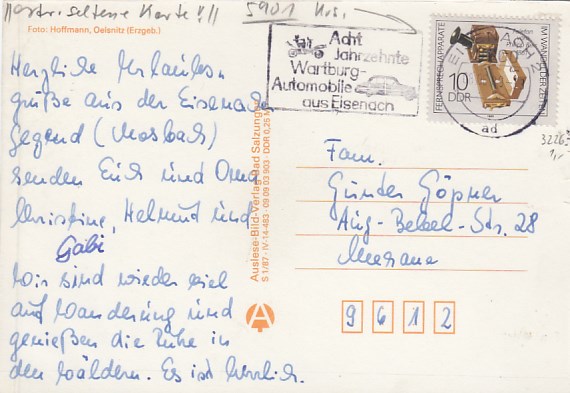 ||extrem seltene Karte!!||
5901 Krs.
Foto: Hoffmann, Oelsnitz (Erzgeb.)
Herzliche Urlaubs-
grüße aus der Eisenacher
Gegend (Mosbach)
senden Euch und Oma
Christine, Helmut und
Gabi
Wir sind wieder viel
auf Wanderung und
genießen die Ruhe in
den Wäldern. Es ist herrlich.
Auslese-Bild-Verlag Bad Salzungen
S 1/87 · IV-14-483 · 09 09 03 903 · DDR 0,25 M
A
Acht
Jahrzehnte
Wartburg-
Automobile
aus Eisenach
FERNSPRECHAPPARATE
IM WANDEL DER ZEIT
10
DDR
ad
3226
1,-
Fam.
Günter Göpner
Aug.-Bebel-Str. 28
Meerane
9612